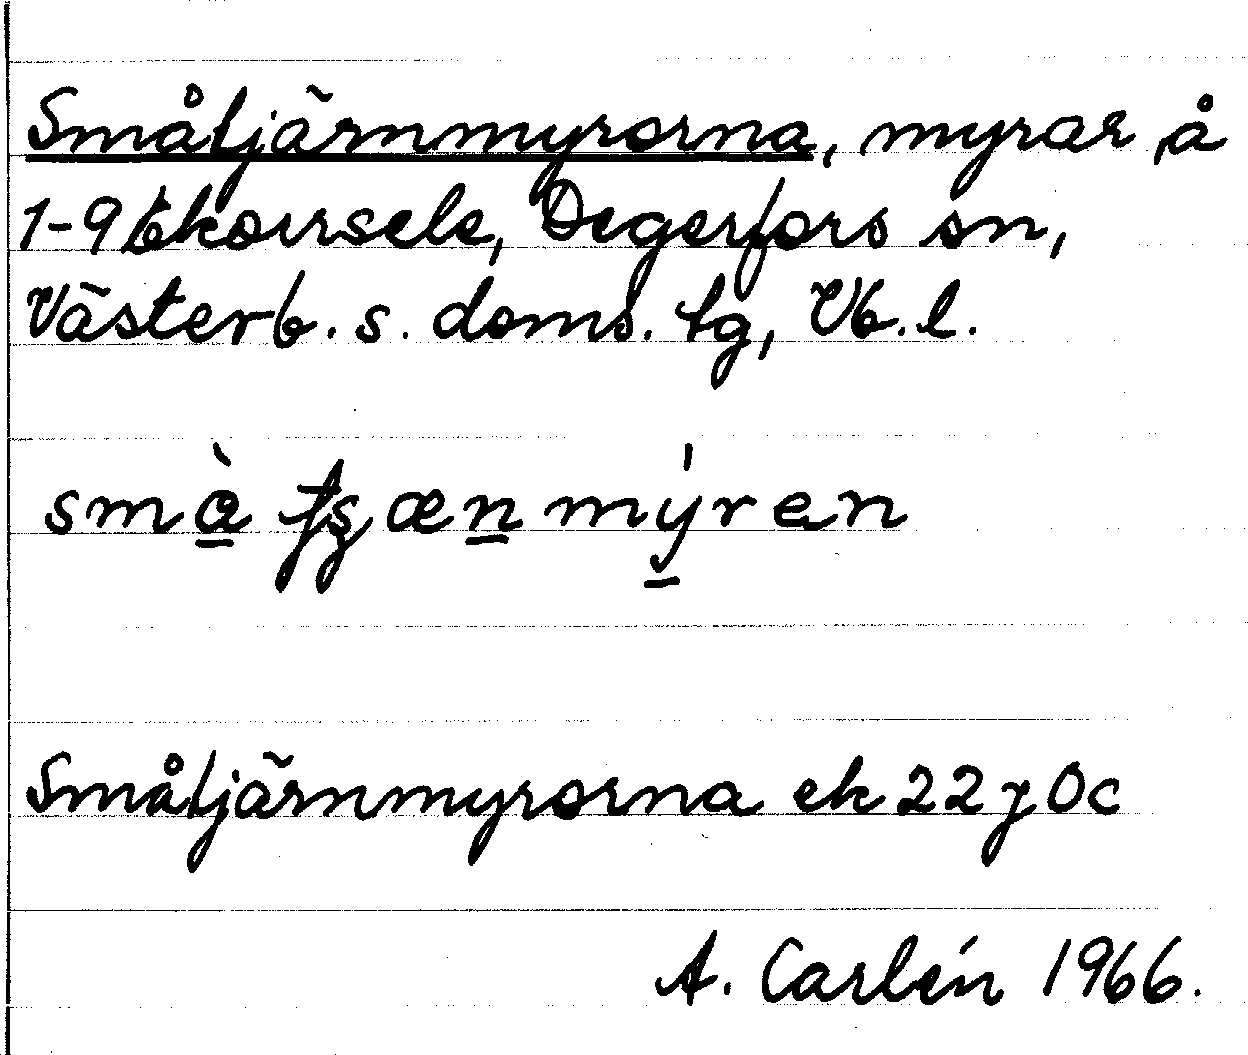 Småtjärnmyrorna, myrar å
1-9 Ekorrsele, Degerfors sn,
Västerb. s. doms. tg, Vb. l.
Småtjärnmyrorna ek 22 j 0 c
A. Carlén 1966.